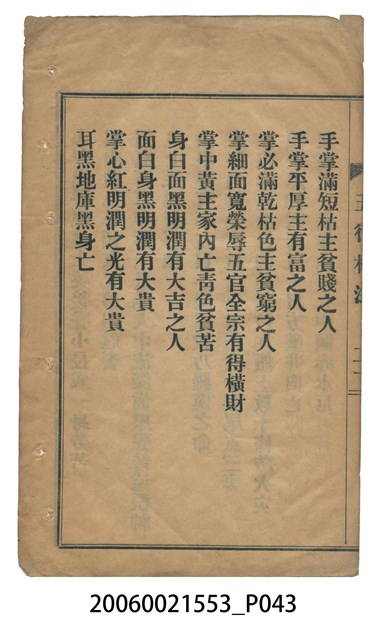 五行相法
二十二
手掌滿短枯主貧賤之人
手掌平厚主有富之人
掌必滿乾枯色主貧窮之人
掌細面寬榮辱五官全宗有得橫財
掌中黃主家內亡靑色貧苦
身白面黑明潤有大吉之人
面白身黑明潤有大貴
掌心紅明潤之光有大貴
耳黑地庫黑身亡
20060021553_P043